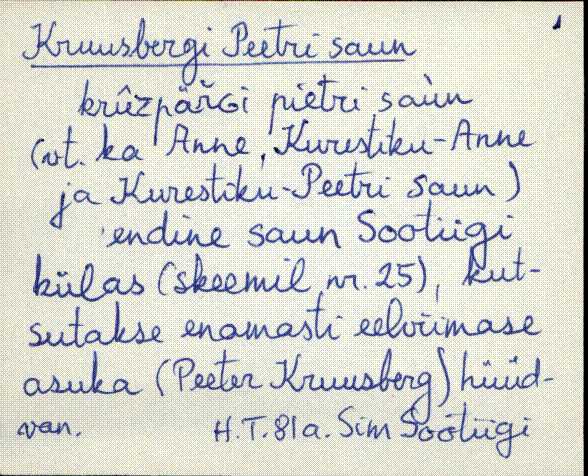 Kruusbergi Peetri saun
krûzpäřGi pìetri saùn
(vt. ka Anne, Kurestiku-Anne
ja Kurestiku-Peetri saun)
endine saun Sootiigi
külas (skeemil nr. 25), kut-
sutakse enamasti eelviimase
asuka (Peeter Kruusberg) hüüd-
van. H.T. 81 a. Sim Sootiigi